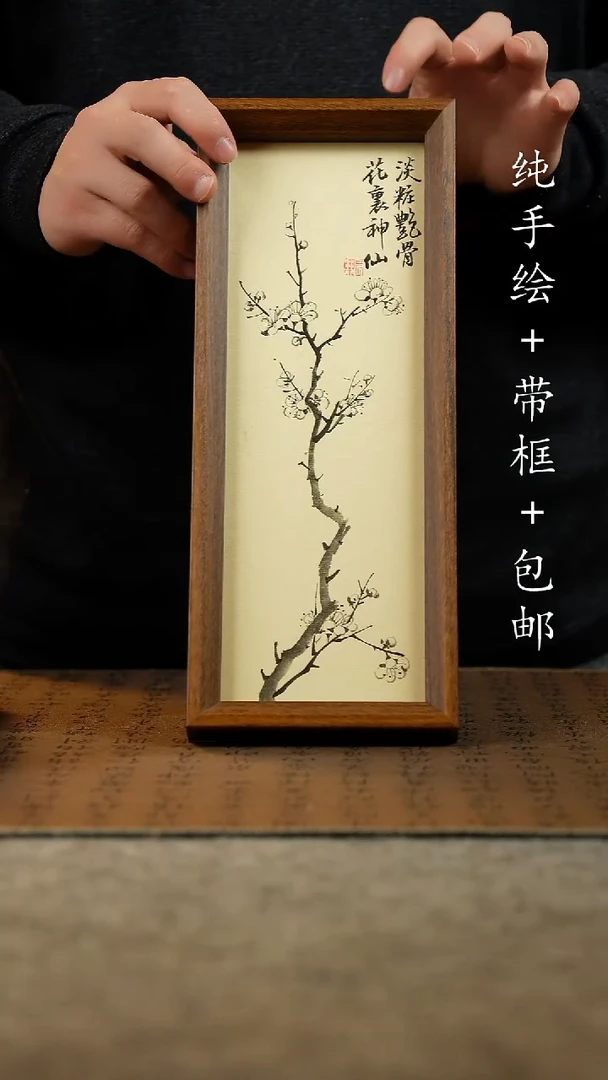 淡粧艷骨
花裏神仙
纯手绘+带框+包邮